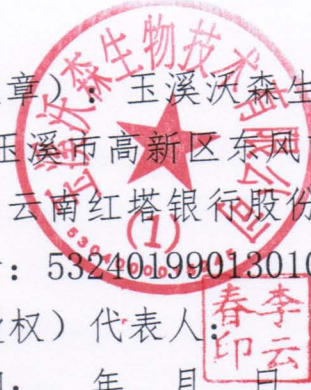 章）：玉溪沃森生
玉溪市高新区东风
云南红塔银行股份
：532401990131010
权）代表人：
年 月 日
玉溪沃森生物技术有限公司
（1）
李云春印